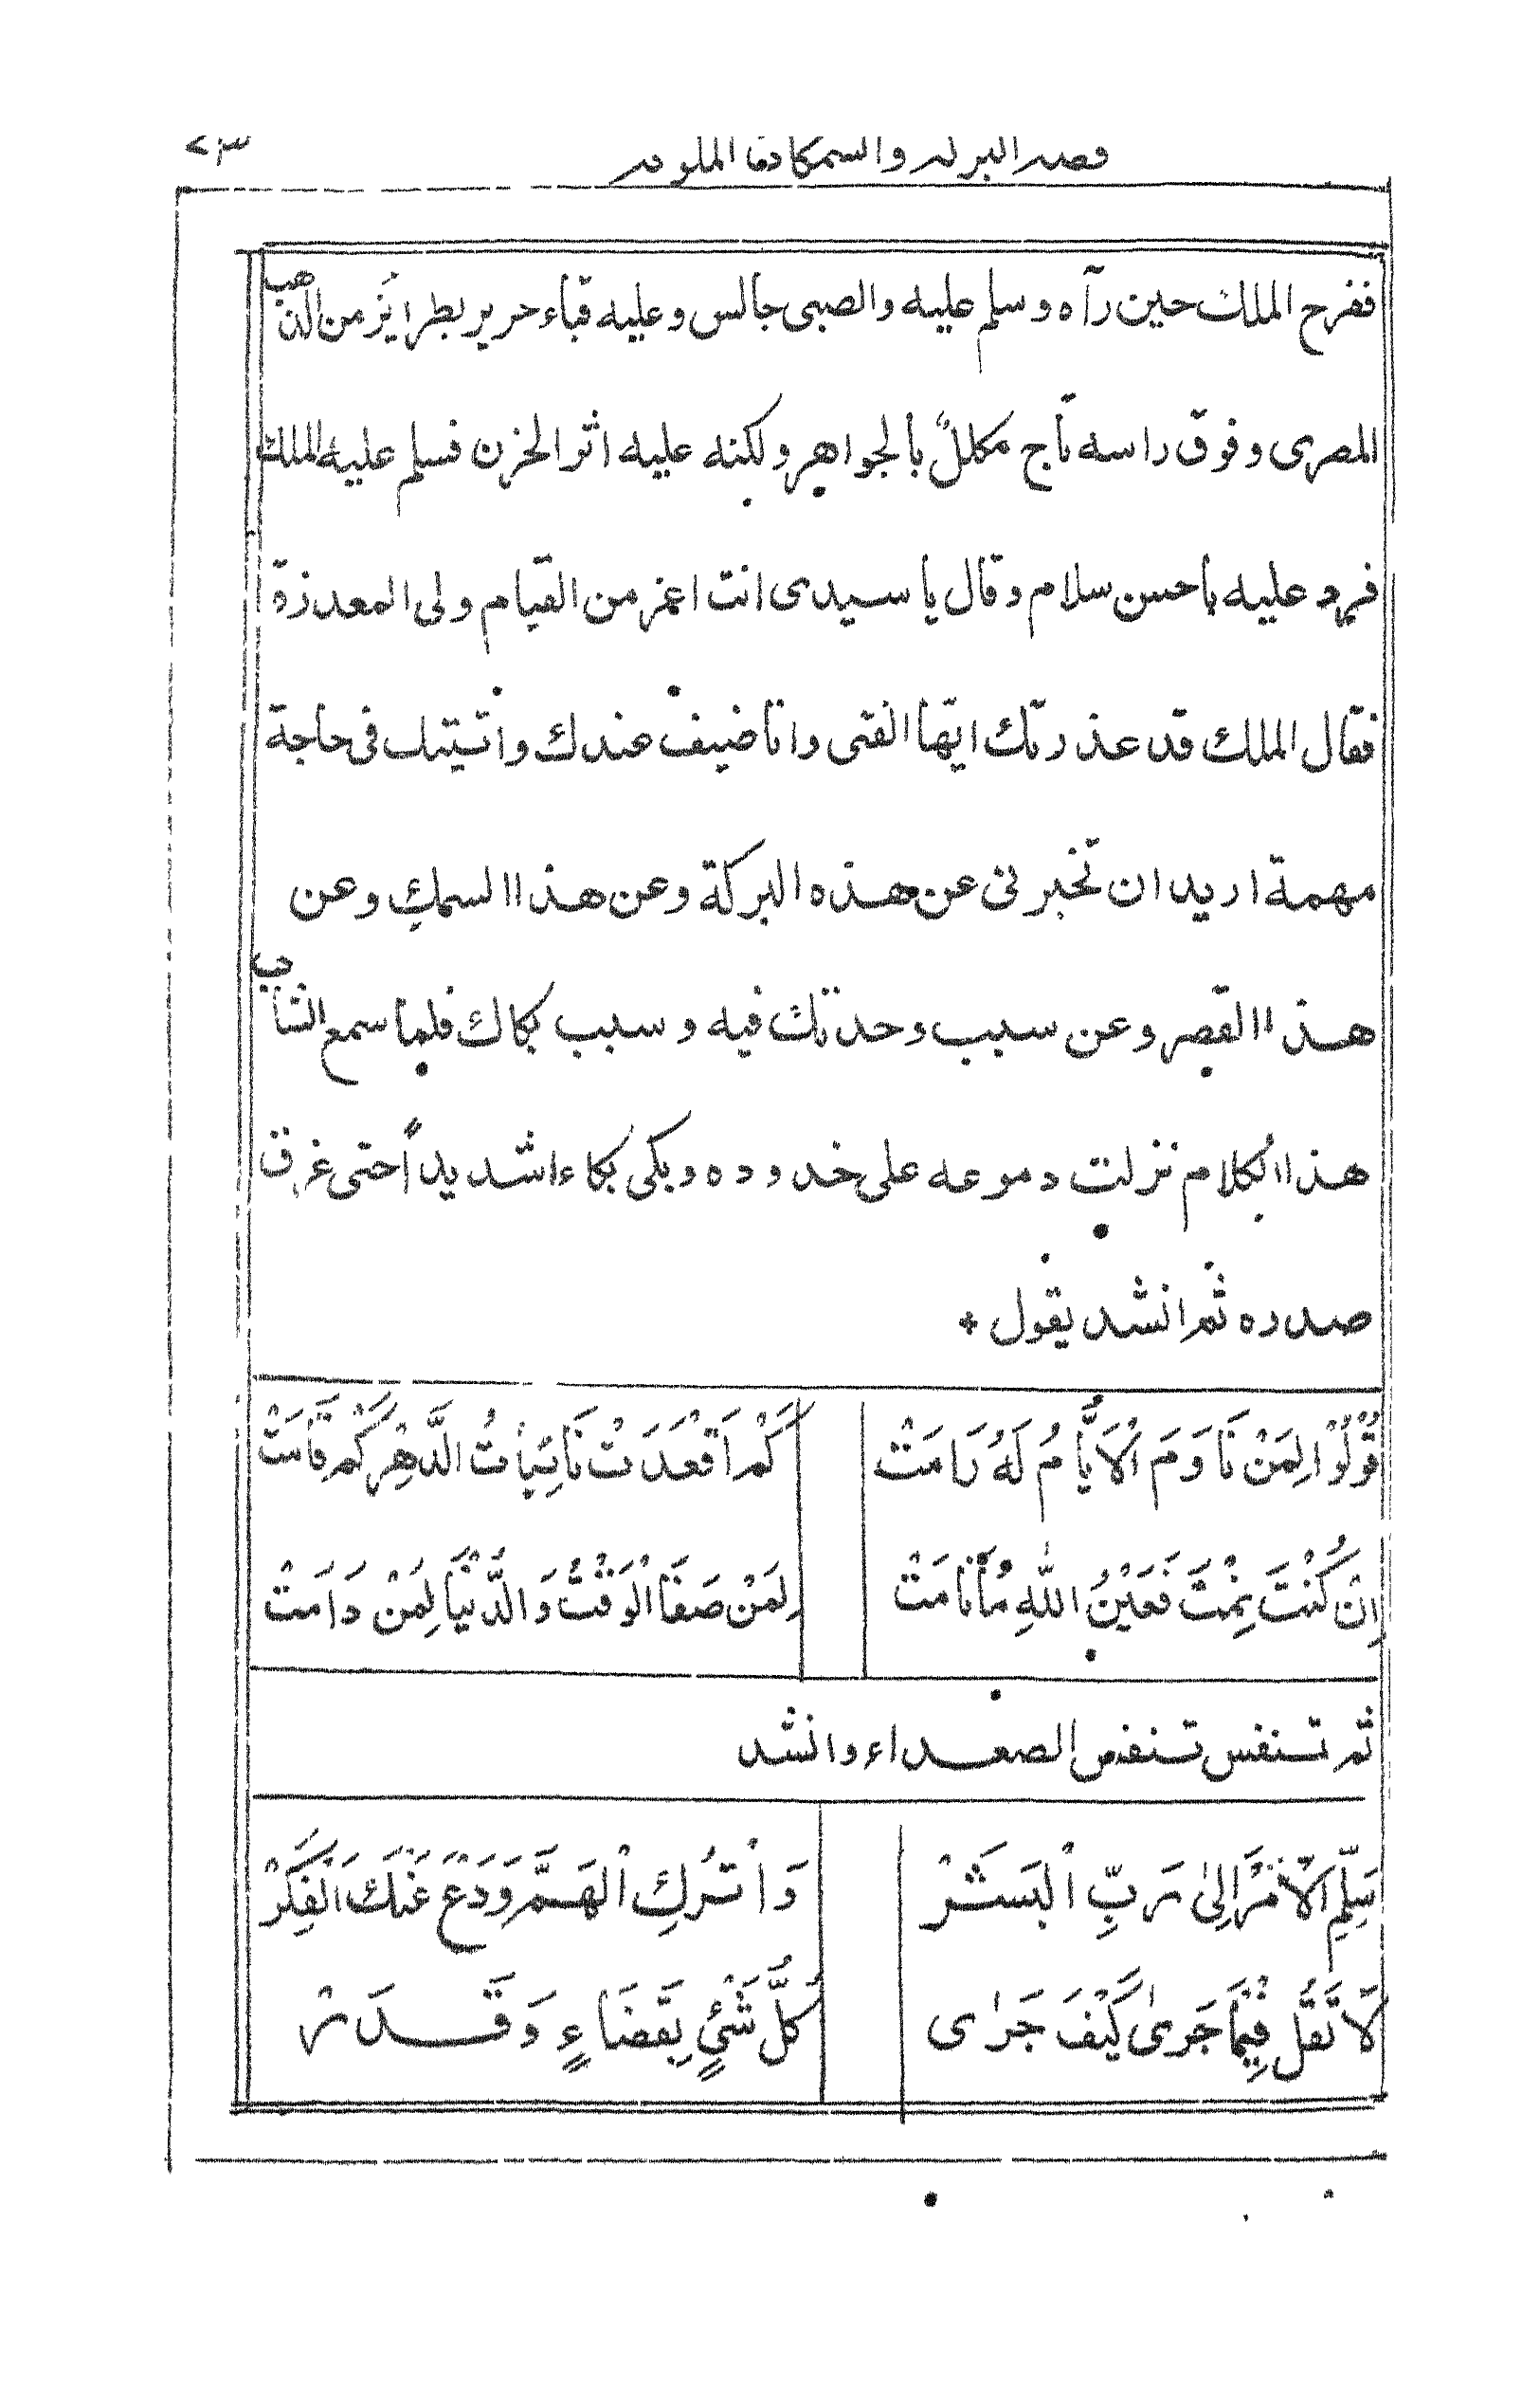 قصه البركه والسمكات الملونه ٧٣
ففرح الملك حين رآه وسلم عليه والصبى جالس وعليه قباء حرير بطرايز من الذهب
المصرى وفوق راسه تاج مكللٌ بالجواهر ولكنه عليه اثر الحزن فسلم عليه الملك
فرد عليه باحسن سلام وقال يا سيدى انت اعز من القيام ولى المعذرة
فقال الملك قد عذرتك ايها الفتى وانا ضيف عندك واتيتك فى حاجة
مهمة اريد ان تخبرنى عن هذه البركة وعن هذا السمك وعن
هذا القصر وعن سبب وحدتك فيه وسبب بكاك فلما سمع الشاب
هذا الكلام نزلت دموعه على خدوده وبكى بكاءا شديداً حتى غرق
صدره ثم انشد يقول *
قُوْلُوْا لِمَنْ نَاوَمَ اْلاَيَّامُ لَهُ رَامَتْ كَمْ اَقْعَدَتْ نَائِبَاتُ الدَّهْرِ كَمْ قَامَتْ
اِنْ كُنْتَ نِمْتَ فَعَيْنُ اللّٰهِ مَا نَامَتْ لِمَنْ صَفَا الْوَقْتُ وَالدُّنْيَا لِمَنْ دَامَتْ
ثم تنفس تنفس الصعداء وانشد
سَلِّمِ اْلاَمْرَ اِلىٰ رَبِّ اْلبَشَرْ وَاْتْرُكِ اْلهَمَّ وَدَعْ عَنْكَ اَلْفِكَرْ
لَا تَقُلْ فِيْمَا جَرىٰ كَيْفَ جَرٰى كُلُّ شَئٍْ بِقَضَاءٍ وَقَدَرْ